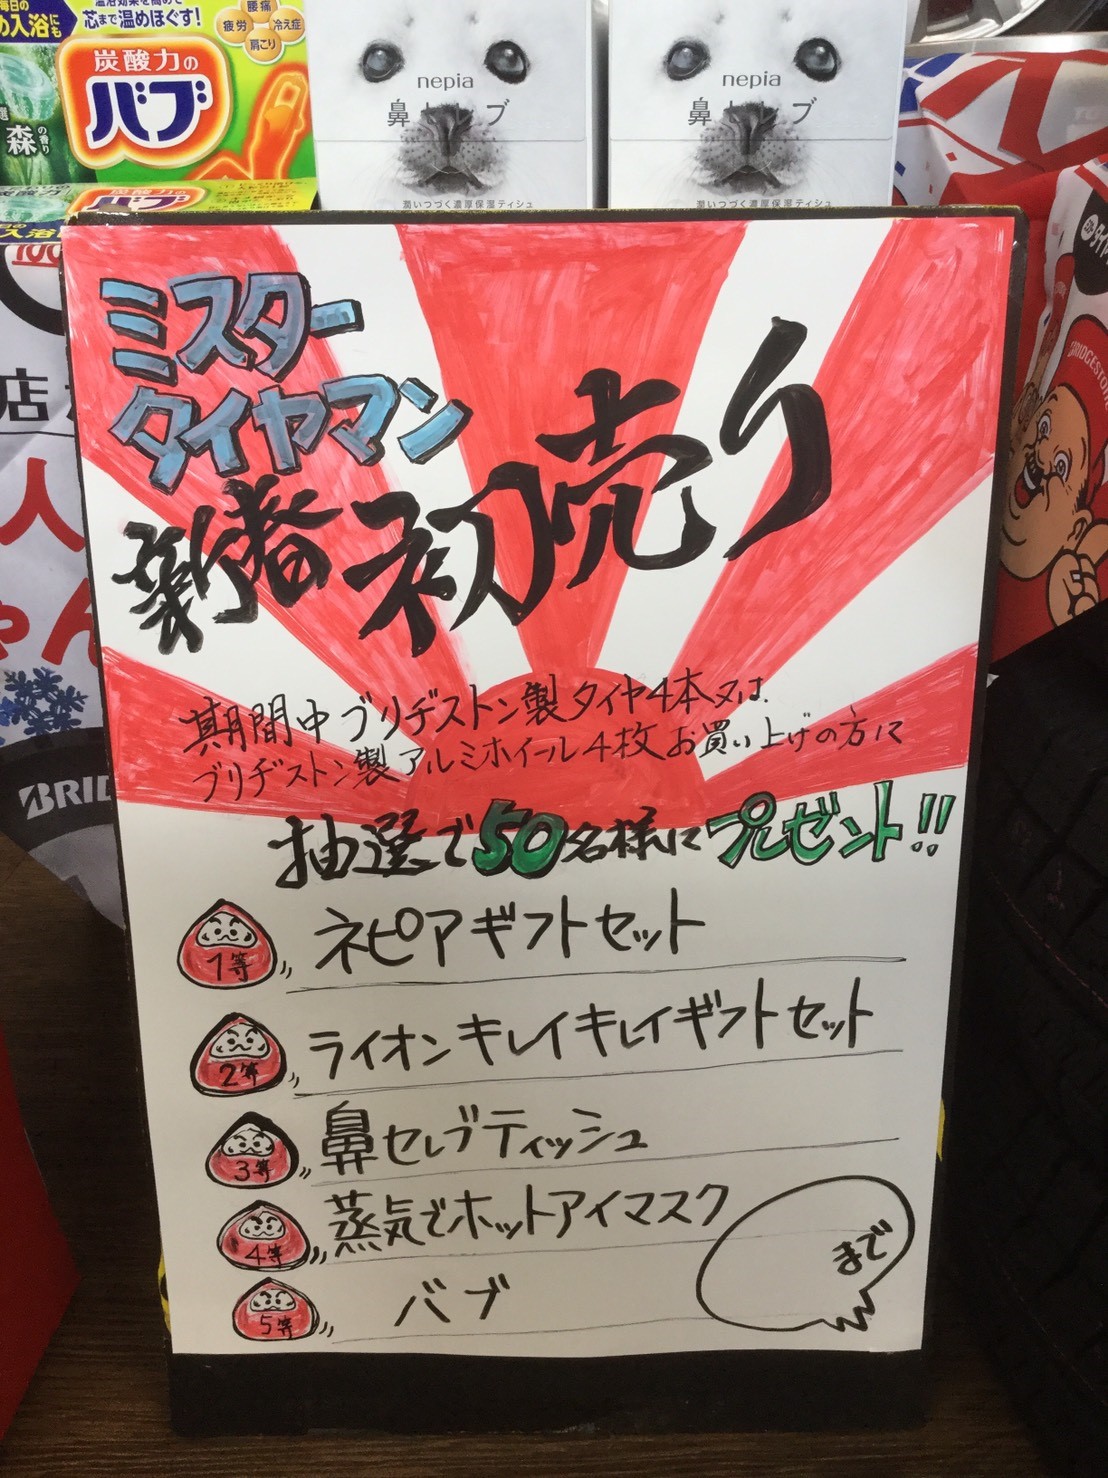 毎日の
め入浴にも
温浴効果を高めて
芯まで温めほぐす!
疲労
腰痛
冷え症
肩こり
炭酸力の
バブ
森の香り
炭酸力の
バブ
nepia
潤いつづく濃厚保湿ティシュ
nepia
潤いつづく濃厚保湿ティシュ
店
人
ゃん
BRID
BRIDGESTONE
ミスター
タイヤマン
新春初売り
期間中ブリヂストン製タイヤ4本又は、
ブリヂストン製アルミホイール4枚お買い上げの方に
抽選で50名様にプレゼント!!
1等 ネピアギフトセット
2等 ライオンキレイキレイギフトセット
3等 鼻セレブティッシュ
4等 蒸気でホットアイマスク
5等 バブ
まで